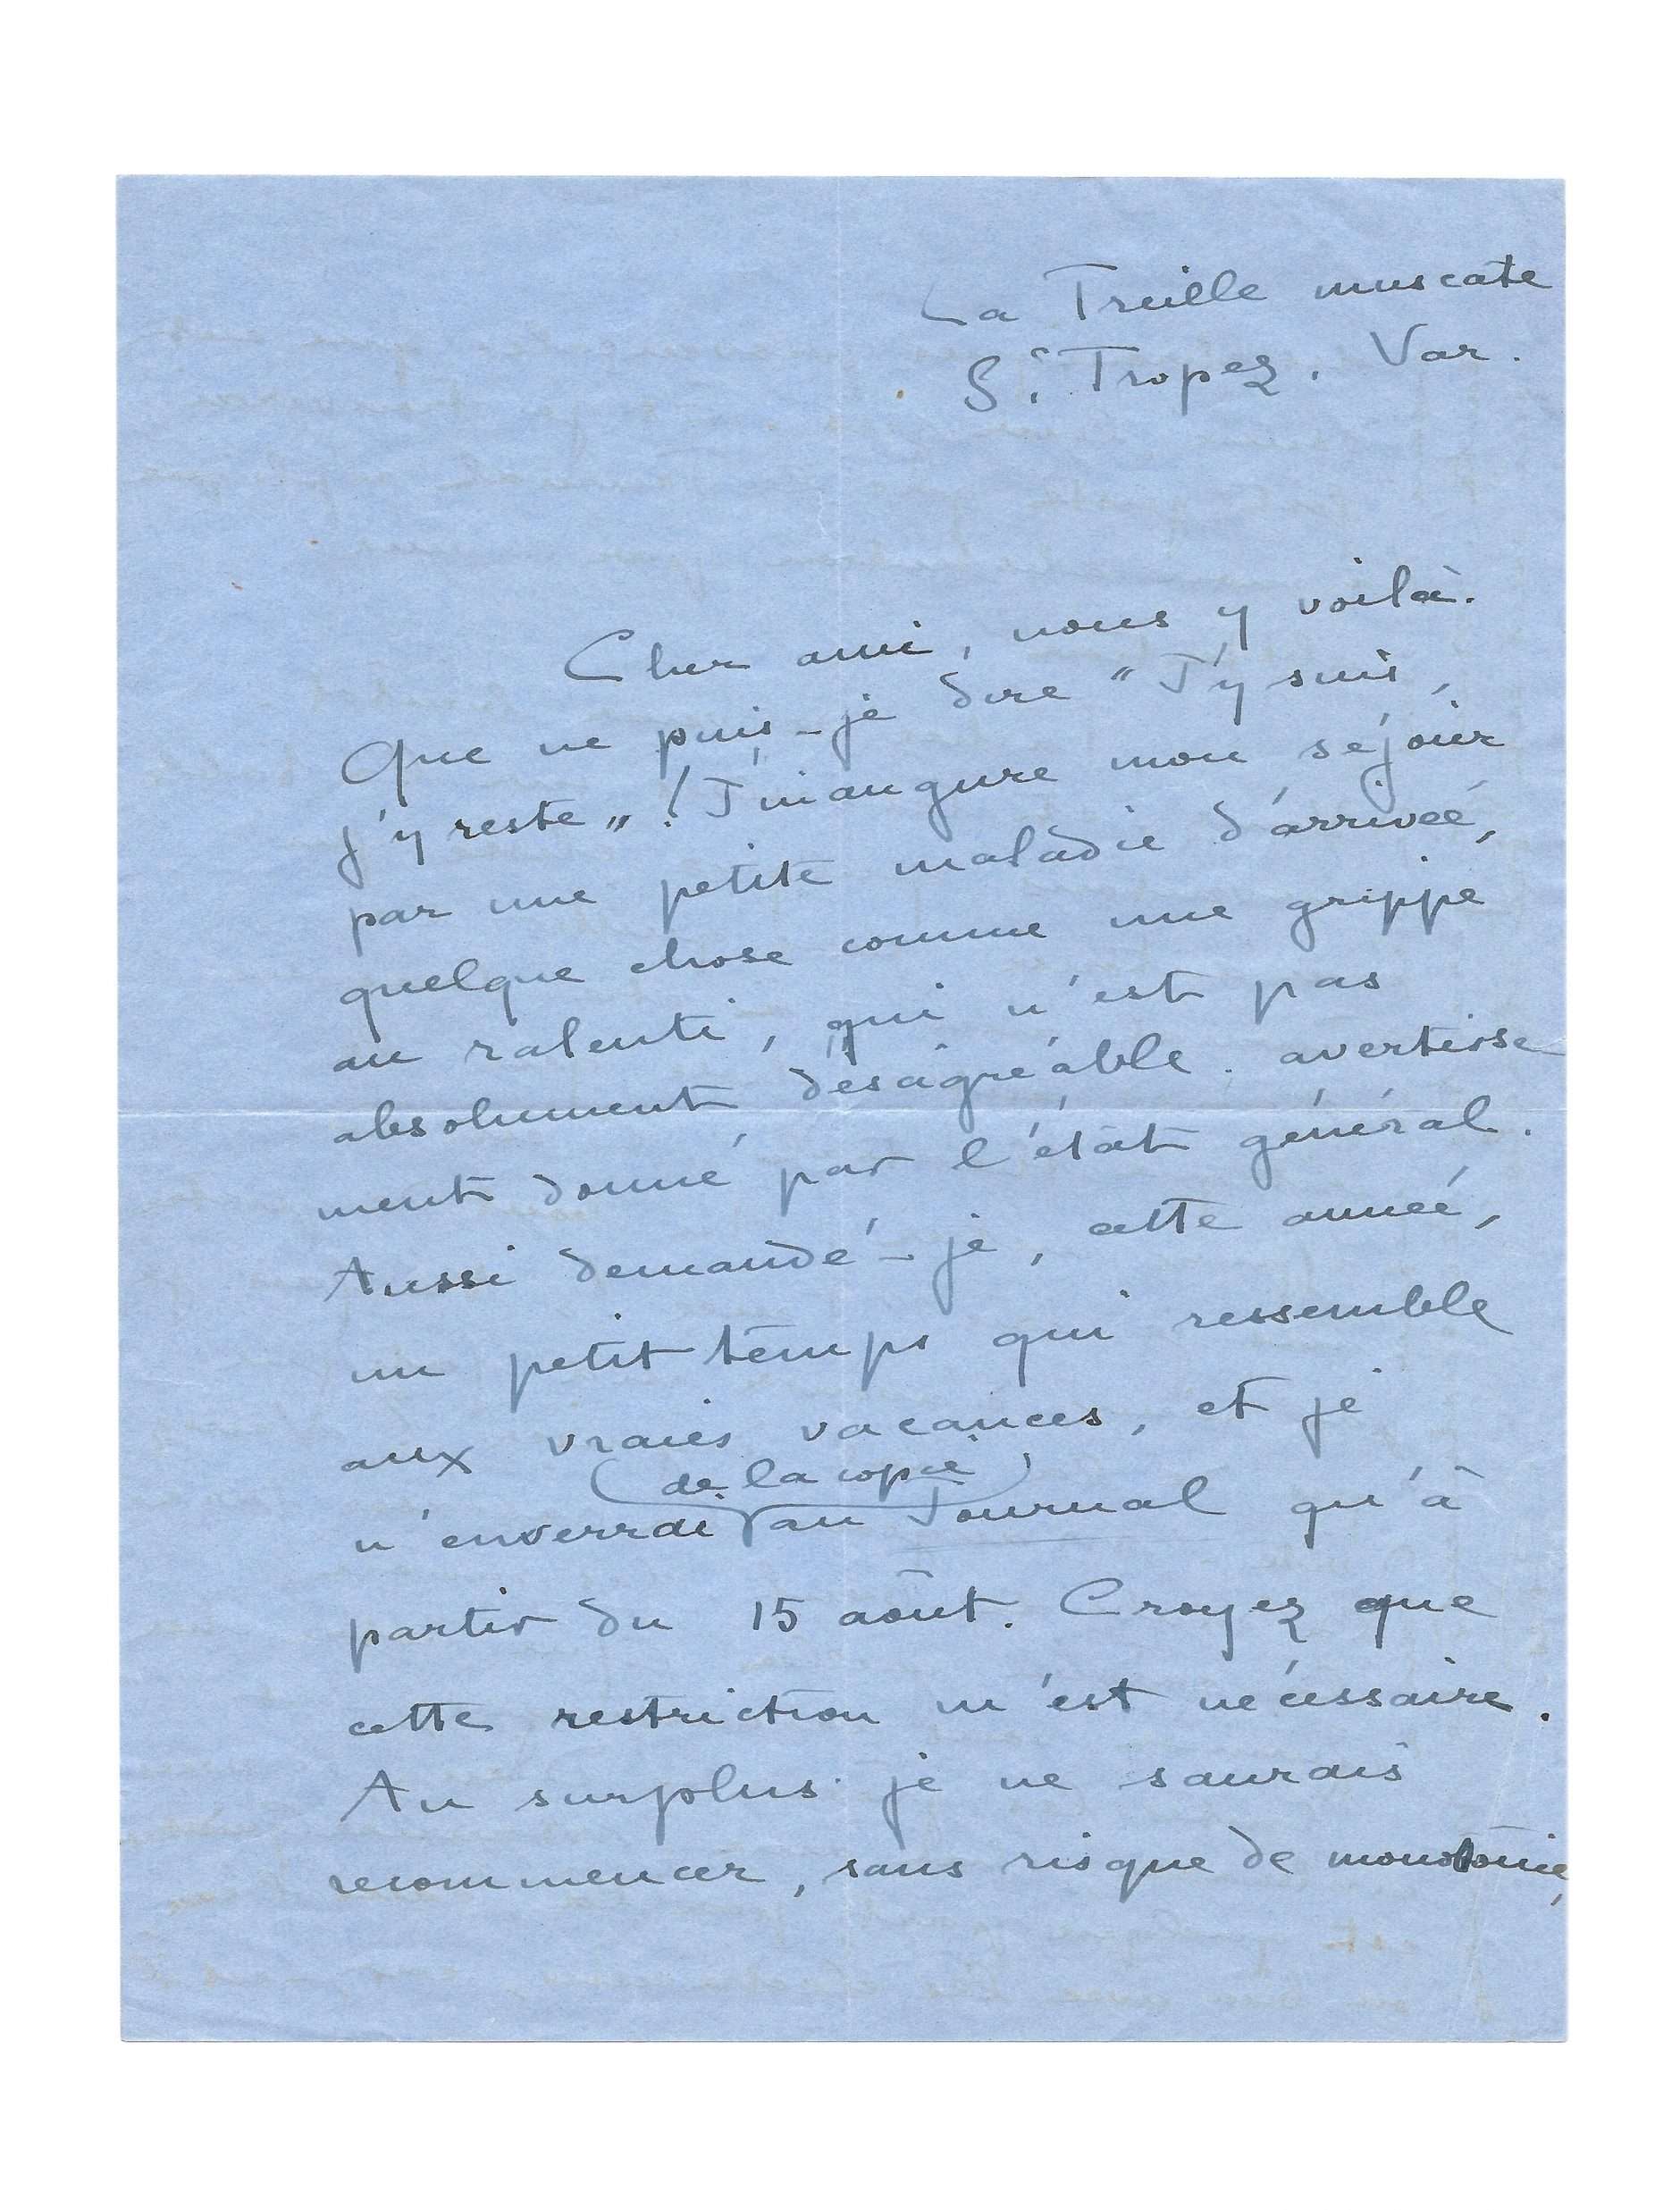 La Treille muscate
St. Tropez. Var.
Cher ami, nous y voilà.
Que ne puis-je dire "J'y suis,
j'y reste" ! J'inaugure mon séjour
par une petite maladie d'arrivée,
quelque chose comme une grippe
au ralenti, qui n'est pas
absolument désagréable. avertisse
ment donné par l'état général.
Aussi demandé-je, cette année,
un petit temps qui ressemble
aux vraies vacances, et je
(de la copie)
n'enverrai au Journal qu'à
partir du 15 août. Croyez que
cette restriction m'est nécessaire.
Au surplus je ne saurais
recommencer, sans risque de monotonie,